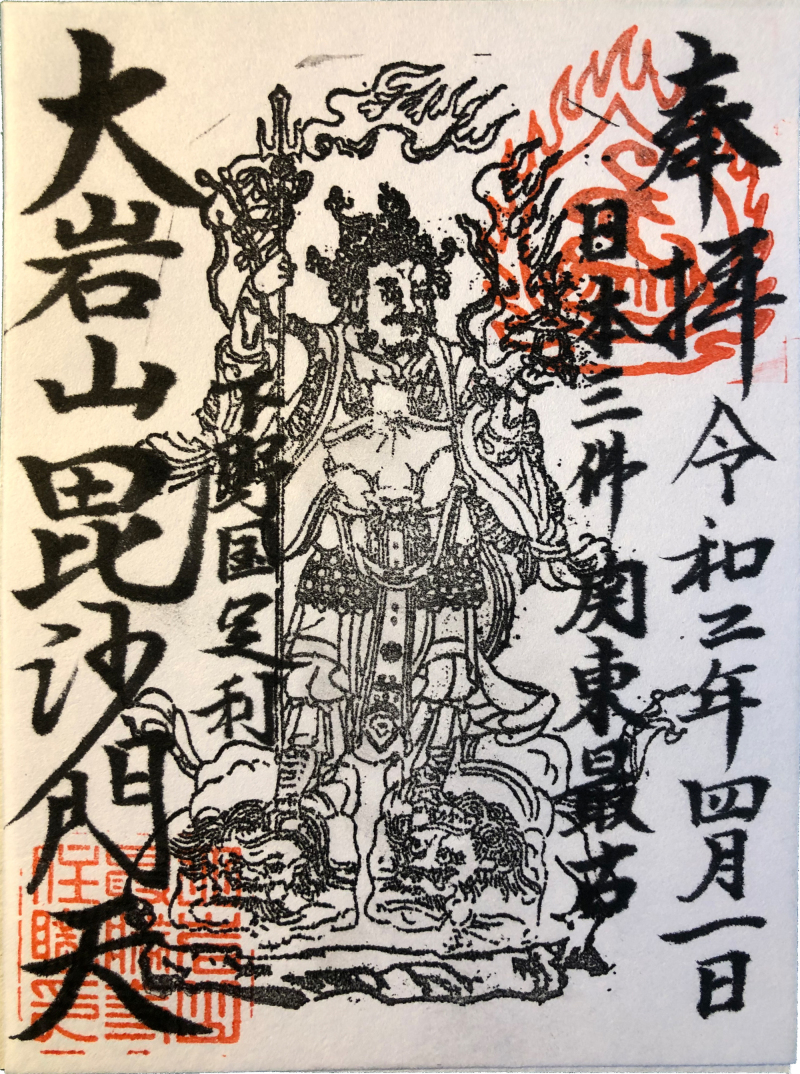 奉拝
令和二年四月一日
日本三体
関東最古
下野国足利
大岩山毘沙門天